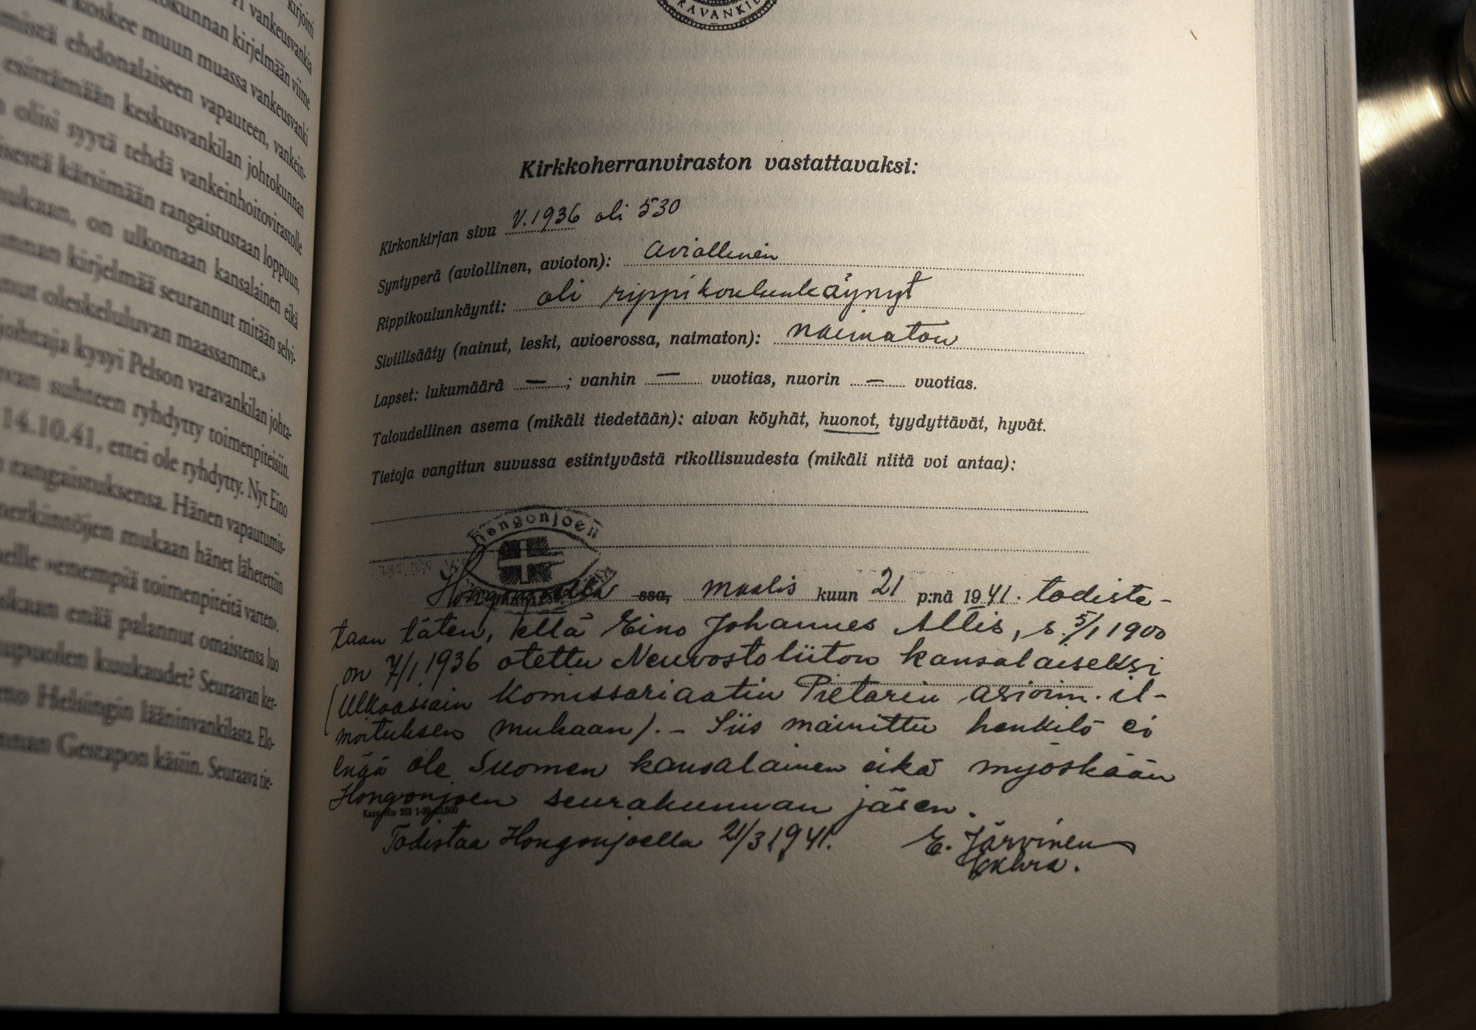 kirjoitti
vankeusvankia
kunnan kirjelmään viime
koskee muun muassa vankeusvanki
mistä ehdonalaiseen vapauteen, vankein-
esittämään keskusvankilan johtokunnan
olisi syytä tehdä vankeinhoitovirastolle
sestä kärsimään rangaistustaan loppuun,
mukaan, on ulkomaan kansalainen eikä
kirjelmää seurannut mitään selvi-
oleskeluluvan maassamme.»
johtaja kysyi Pelson varavankilan johta-
suhteen ryhdytty toimenpiteisiin.
14.10.41, ettei ole ryhdytty. Nyt Eino
rangaistuksensa. Hänen vapautumis-
merkintöjen mukaan hänet lähetettiin
»enempiä toimenpiteitä varten».
enää palannut omaistensa luo
kuukaudet? Seuraavan ker-
Helsingin lääninvankilasta. Elo-
Gestapon käsiin. Seuraava tie-
RAVANKI
Kirkkoherranviraston vastattavaksi:
Kirkonkirjan sivu V. 1936 oli 530
Syntyperä (aviollinen, avioton): aviollinen
Rippikoulunkäynti: oli rippikoulunkäynyt
Siviilisääty (nainut, leski, avioerossa, naimaton): naimaton
Lapset: lukumäärä —; vanhin — vuotias, nuorin — vuotias.
Taloudellinen asema (mikäli tiedetään): aivan köyhät, huonot, tyydyttävät, hyvät.
Tietoja vangitun suvussa esiintyvästä rikollisuudesta (mikäli niitä voi antaa):
Hongonjoen
Hongonjoella ssa, maalis kuun 21 p:nä 1941. todiste-
taan täten, että Eino Johannes Altis, s. 5/1 1900
on 7/1 1936 otettu Neuvostoliiton kansalaiseksi
(Ulkoasiain Komissariaatin Pietarin asioim. il-
moituksen mukaan). – Siis mainittu henkilö ei
enää ole Suomen kansalainen eikä myöskään
Hongonjoen seurakunnan jäsen.
Todistaa Hongonjoella 21/3 1941. E. Järvinen
kkhra.